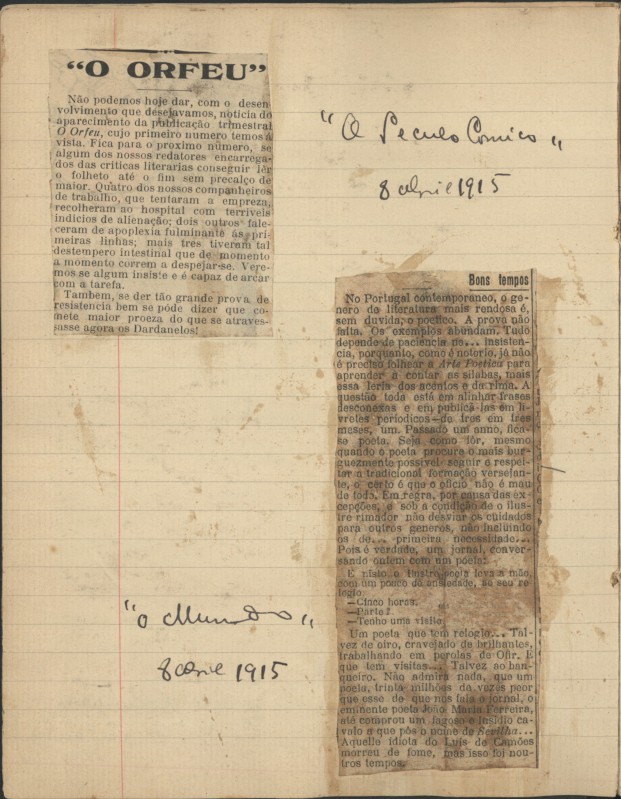 “O ORFEU”
Não podemos hoje dar, com o desen
volvimento que desejavamos, noticia do
aparecimento da publicação trimestral
O Orfeu, cujo primeiro numero temos á
vista. Fica para o proximo número, se
algum dos nossos redatores encarrega-
dos das criticas literarias conseguir lêr
o folheto até o fim sem precalço de
maior. Quatro dos nossos companheiros
de trabalho, que tentaram a empreza,
recolheram ao hospital com terriveis
indicios de alienação; dois outros fale-
ceram de apoplexia fulminante ás pri-
meiras linhas; mais tres tiveram tal
destempero intestinal que de momento
a momento correm a despejar-se. Vere-
mos se algum insiste e é capaz de arcar
com a tarefa.
Tambem, se der tão grande prova de
resistencia bem se póde dizer que co-
mete maior proeza do que se atraves-
sasse agora os Dardanelos!
"O Seculo Comico"
8 abril 1915
Bons tempos
No Portugal contemporaneo, o ge-
nero de literatura mais rendosa é,
sem duvida, o poetico. A prova não
falta. Os exemplos abundam. Tudo
depende de paciencia na... insisten-
cia, porquanto, como é notorio, já não
é preciso folhear a Arte Poetica para
aprender a contar as silabas, mais
essa leria dos acentos e da rima. A
questão toda está em alinhar frases
desconexas e em publicá-las em li-
vretes periodicos—de tres em tres
meses, um. Passado um anno, fica-
se poeta. Seja como fôr, mesmo
quando o poeta procure o mais bur-
guezmente possivel seguir e respei-
tar a tradicional formação versejan-
te, o certo é que o oficio não é mau
de todo. Em regra, por causa das ex-
cepções, e sob a condição de o ilus-
tre rimador não desviar os cuidados
para outros generos, não incluindo
os de... primeira necessidade...
Pois é verdade, um jornal, conver-
sando ontem com um poeta:
E nisto o ilustre poeta leva a mão,
com um pouco da ansiedade, ao seu re
logio.
—Cinco horas.
—Parte?
—Tenho uma visita
Um poeta que tem relogio... Tal-
vez de oiro, cravejado de brilhantes,
trabalhando em perolas de Ofir. E
que tem visitas... Talvez ao ban-
queiro. Não admira nada, que um
poeta, trinta milhões de vezes peor
que esse de que nos fala o jornal, o
eminente poeta João Maria Ferreira,
até comprou um fagoso e lusidio ca-
valo a que pôs o nome de Sevilha...
Aquelle idiota do Luis de Camões
morreu de fome, mas isso foi nou-
tros tempos.
"O Mundo"
8 abril 1915